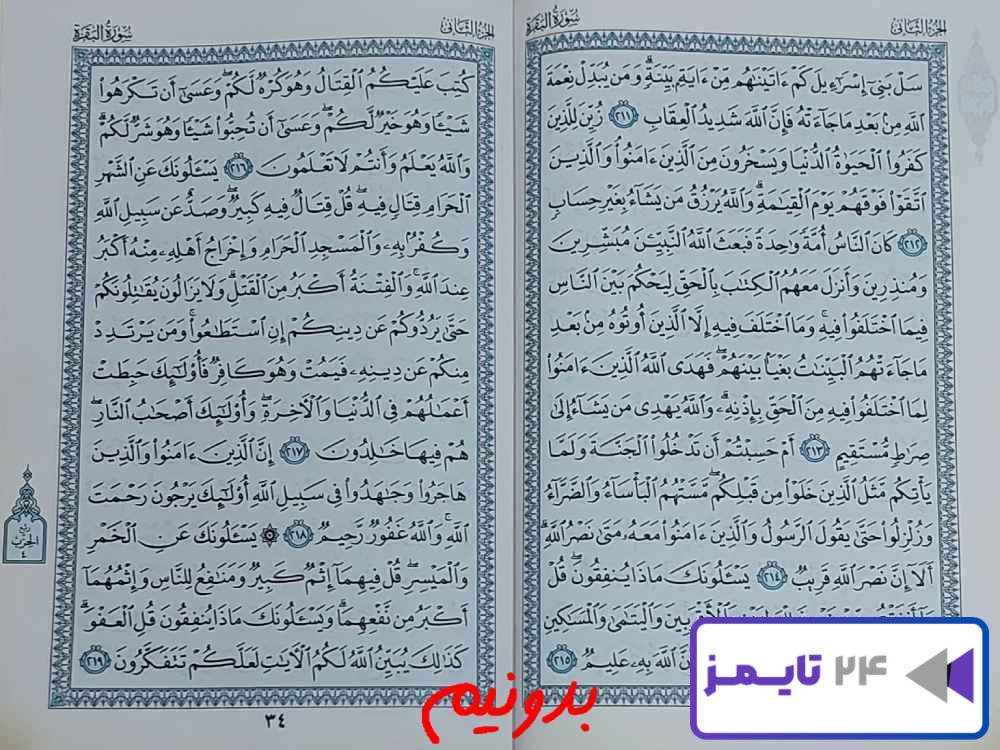 الجزء الثاني
سورة البقرة
سَلْ بَنِىٓ إِسْرَٰٓءِيلَ كَمْ ءَاتَيْنَٰهُم مِّنْ ءَايَةٍۭ بَيِّنَةٍۗ وَمَن يُبَدِّلْ نِعْمَةَ
ٱللَّهِ مِنۢ بَعْدِ مَا جَآءَتْهُ فَإِنَّ ٱللَّهَ شَدِيدُ ٱلْعِقَابِ ٢١١ زُيِّنَ لِلَّذِينَ
كَفَرُوا۟ ٱلْحَيَوٰةُ ٱلدُّنْيَا وَيَسْخَرُونَ مِنَ ٱلَّذِينَ ءَامَنُوا۟ۘ وَٱلَّذِينَ
ٱتَّقَوْا۟ فَوْقَهُمْ يَوْمَ ٱلْقِيَٰمَةِۗ وَٱللَّهُ يَرْزُقُ مَن يَشَآءُ بِغَيْرِ حِسَابٍ
٢١٢ كَانَ ٱلنَّاسُ أُمَّةً وَٰحِدَةً فَبَعَثَ ٱللَّهُ ٱلنَّبِيِّۦنَ مُبَشِّرِينَ
وَمُنذِرِينَ وَأَنزَلَ مَعَهُمُ ٱلْكِتَٰبَ بِٱلْحَقِّ لِيَحْكُمَ بَيْنَ ٱلنَّاسِ
فِيمَا ٱخْتَلَفُوا۟ فِيهِۚ وَمَا ٱخْتَلَفَ فِيهِ إِلَّا ٱلَّذِينَ أُوتُوهُ مِنۢ بَعْدِ
مَا جَآءَتْهُمُ ٱلْبَيِّنَٰتُ بَغْيًۢا بَيْنَهُمْۖ فَهَدَى ٱللَّهُ ٱلَّذِينَ ءَامَنُوا۟
لِمَا ٱخْتَلَفُوا۟ فِيهِ مِنَ ٱلْحَقِّ بِإِذْنِهِۦۗ وَٱللَّهُ يَهْدِى مَن يَشَآءُ إِلَىٰ
صِرَٰطٍ مُّسْتَقِيمٍ ٢١٣ أَمْ حَسِبْتُمْ أَن تَدْخُلُوا۟ ٱلْجَنَّةَ وَلَمَّا
يَأْتِكُم مَّثَلُ ٱلَّذِينَ خَلَوْا۟ مِن قَبْلِكُمۖ مَّسَّتْهُمُ ٱلْبَأْسَآءُ وَٱلضَّرَّآءُ
وَزُلْزِلُوا۟ حَتَّىٰ يَقُولَ ٱلرَّسُولُ وَٱلَّذِينَ ءَامَنُوا۟ مَعَهُۥ مَتَىٰ نَصْرُ ٱللَّهِۗ
أَلَآ إِنَّ نَصْرَ ٱللَّهِ قَرِيبٌ ٢١٤ يَسْـَٔلُونَكَ مَاذَا يُنفِقُونَۖ قُلْ
وَٱلْأَقْرَبِينَ وَٱلْيَتَٰمَىٰ وَٱلْمَسَٰكِينِ
ٱللَّهَ بِهِۦ عَلِيمٌ ٢١٥
الجزء الثاني
سورة البقرة
كُتِبَ عَلَيْكُمُ ٱلْقِتَالُ وَهُوَ كُرْهٌ لَّكُمْۖ وَعَسَىٰٓ أَن تَكْرَهُوا۟
شَيْـًٔا وَهُوَ خَيْرٌ لَّكُمْۖ وَعَسَىٰٓ أَن تُحِبُّوا۟ شَيْـًٔا وَهُوَ شَرٌّ لَّكُمْۗ
وَٱللَّهُ يَعْلَمُ وَأَنتُمْ لَا تَعْلَمُونَ ٢١٦ يَسْـَٔلُونَكَ عَنِ ٱلشَّهْرِ
ٱلْحَرَامِ قِتَالٍ فِيهِۖ قُلْ قِتَالٌ فِيهِ كَبِيرٌۖ وَصَدٌّ عَن سَبِيلِ ٱللَّهِ
وَكُفْرٌۢ بِهِۦ وَٱلْمَسْجِدِ ٱلْحَرَامِ وَإِخْرَاجُ أَهْلِهِۦ مِنْهُ أَكْبَرُ
عِندَ ٱللَّهِۚ وَٱلْفِتْنَةُ أَكْبَرُ مِنَ ٱلْقَتْلِۗ وَلَا يَزَالُونَ يُقَٰتِلُونَكُمْ
حَتَّىٰ يَرُدُّوكُمْ عَن دِينِكُمْ إِنِ ٱسْتَطَٰعُوا۟ۚ وَمَن يَرْتَدِدْ
مِنكُمْ عَن دِينِهِۦ فَيَمُتْ وَهُوَ كَافِرٌ فَأُو۟لَٰٓئِكَ حَبِطَتْ
أَعْمَٰلُهُمْ فِى ٱلدُّنْيَا وَٱلْـَٔاخِرَةِۖ وَأُو۟لَٰٓئِكَ أَصْحَٰبُ ٱلنَّارِۖ
هُمْ فِيهَا خَٰلِدُونَ ٢١٧ إِنَّ ٱلَّذِينَ ءَامَنُوا۟ وَٱلَّذِينَ
هَاجَرُوا۟ وَجَٰهَدُوا۟ فِى سَبِيلِ ٱللَّهِ أُو۟لَٰٓئِكَ يَرْجُونَ رَحْمَتَ
ٱللَّهِۚ وَٱللَّهُ غَفُورٌ رَّحِيمٌ ٢١٨ ۞ يَسْـَٔلُونَكَ عَنِ ٱلْخَمْرِ
وَٱلْمَيْسِرِۖ قُلْ فِيهِمَآ إِثْمٌ كَبِيرٌ وَمَنَٰفِعُ لِلنَّاسِ وَإِثْمُهُمَآ
أَكْبَرُ مِن نَّفْعِهِمَاۗ وَيَسْـَٔلُونَكَ مَاذَا يُنفِقُونَ قُلِ ٱلْعَفْوَۗ
كَذَٰلِكَ يُبَيِّنُ ٱللَّهُ لَكُمُ ٱلْـَٔايَٰتِ لَعَلَّكُمْ تَتَفَكَّرُونَ ٢١٩
ربع
الحزب
٣٤
بدونیم
۲۴ تایمز